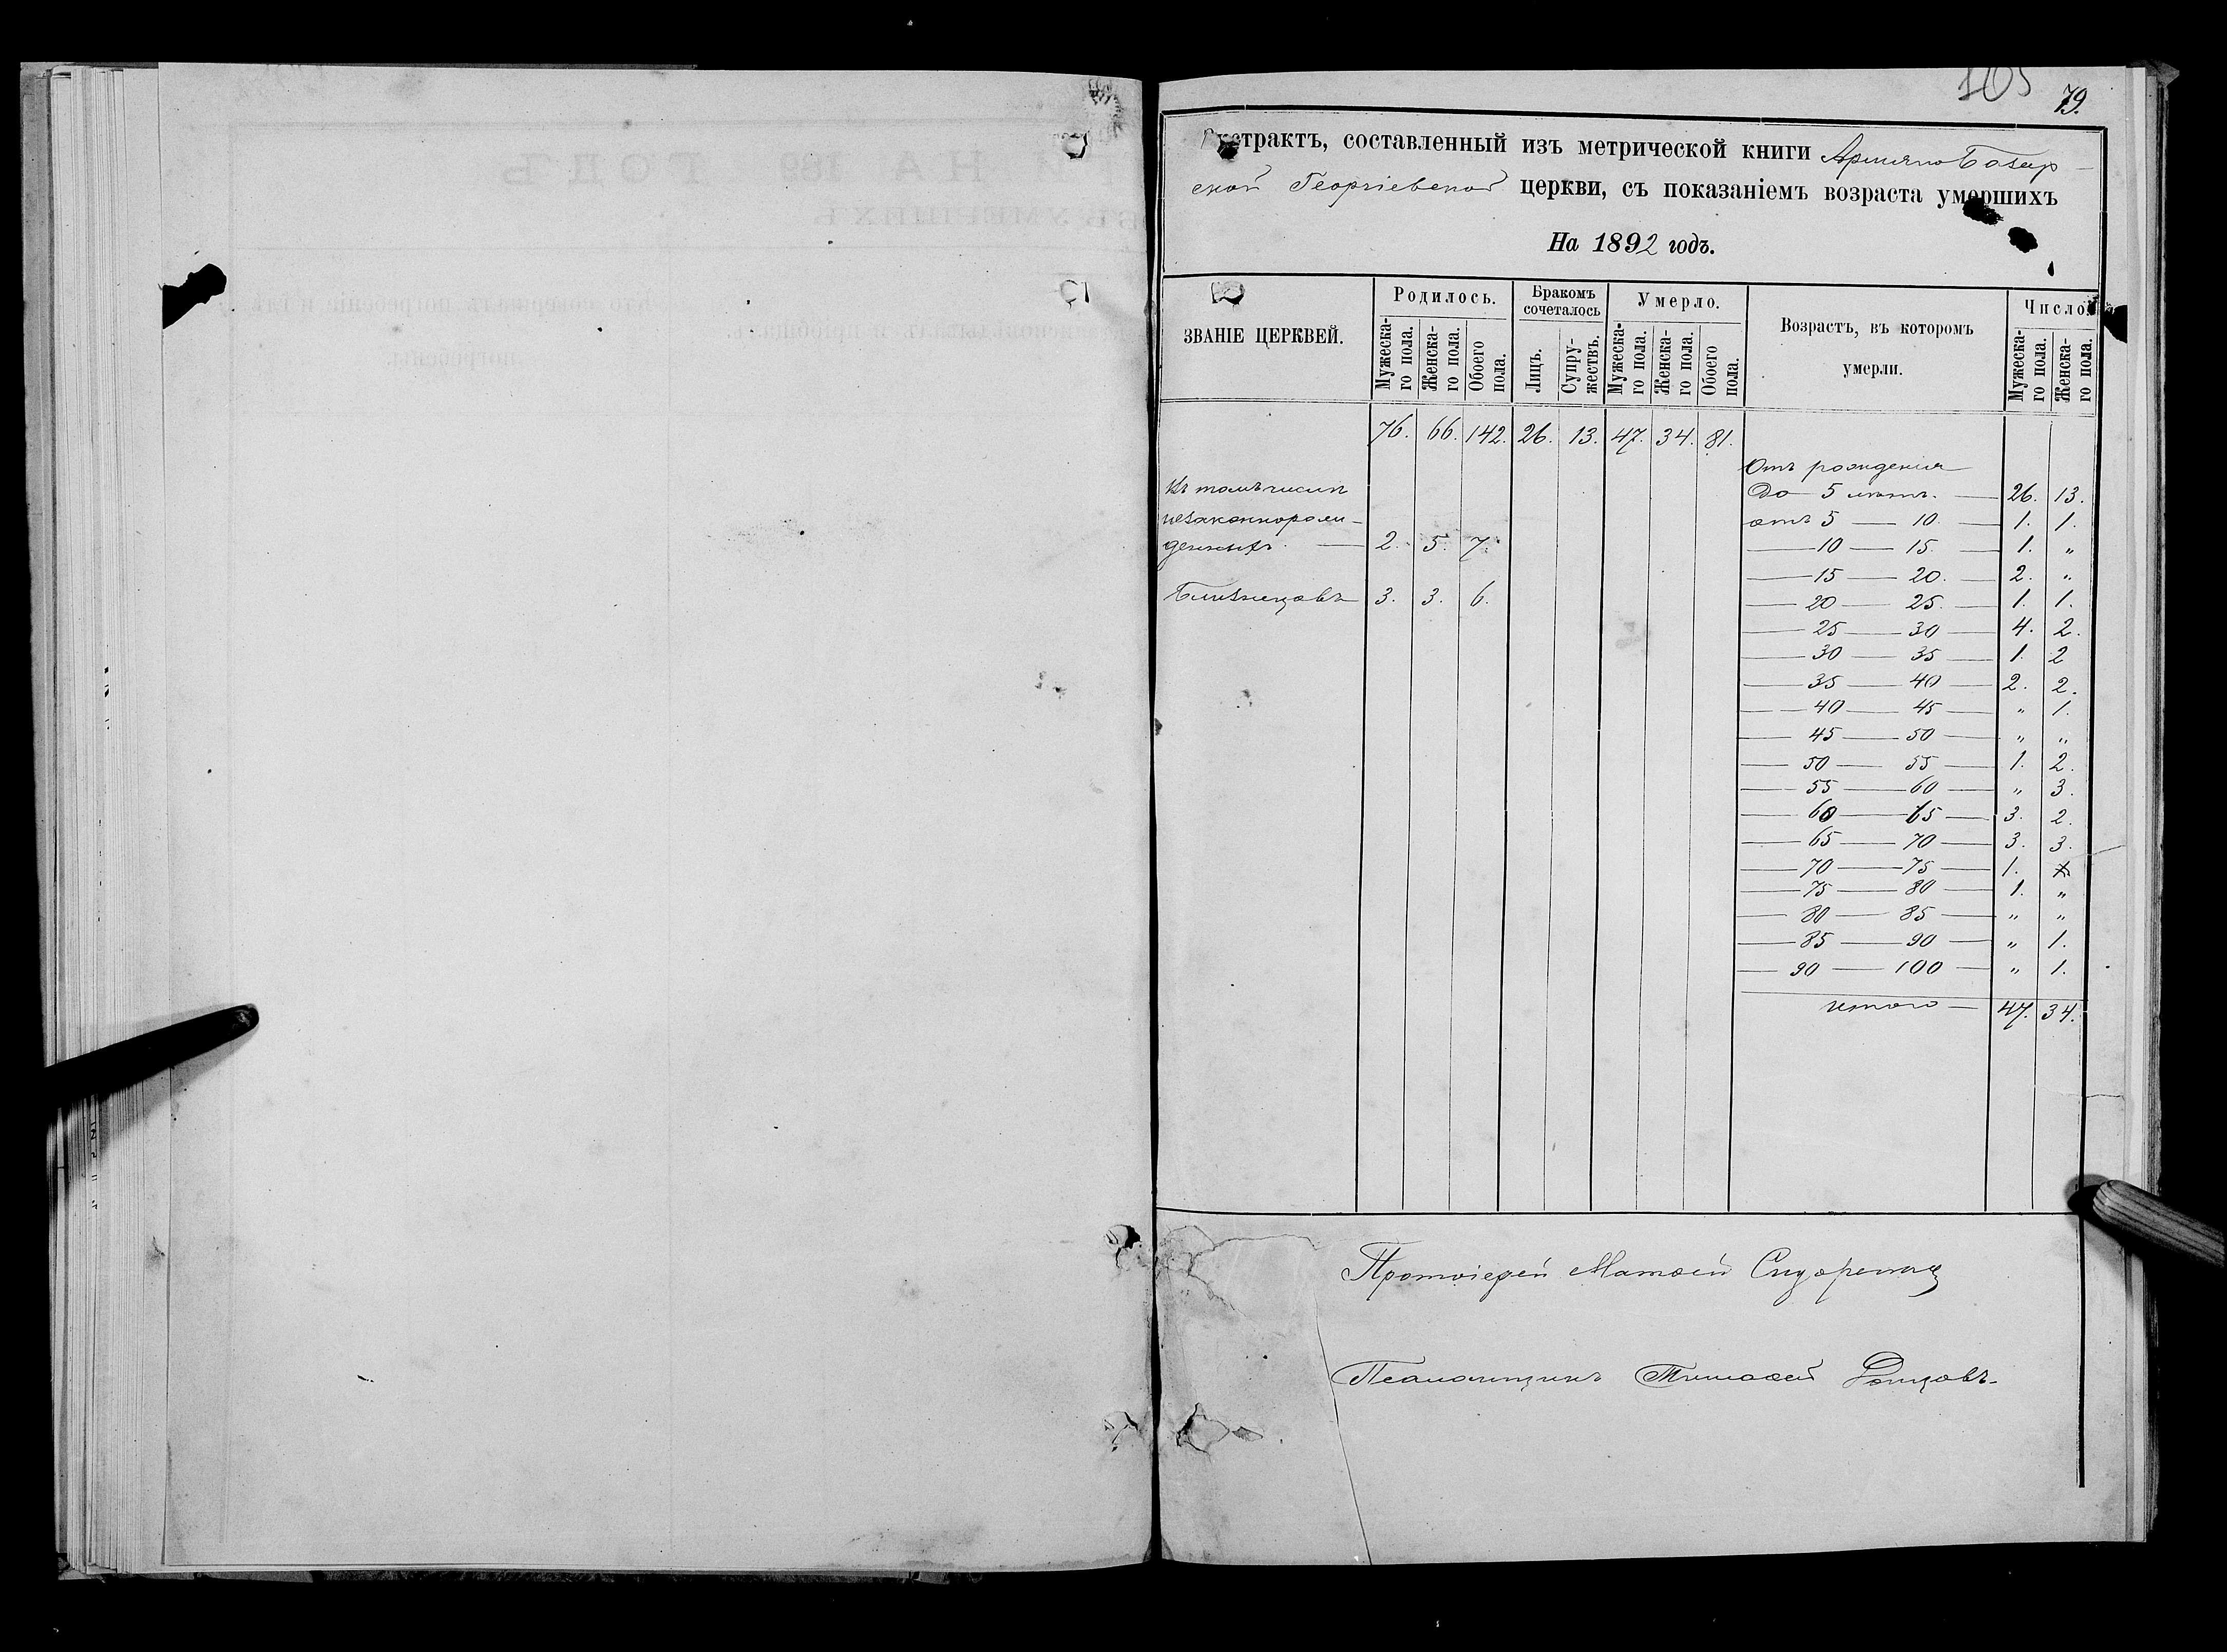 105
79.
Экстрактъ, составленный изъ метрической книги Армяно Базар-
ской Георгіевской церкви, съ показаніемъ возраста умершихъ
На 1892 годъ.
ЗВАНІЕ ЦЕРКВЕЙ. Родилось. Бракомъ сочеталось Умерло. Возрастъ, въ которомъ умерли. Число
Мужеска-го пола. Женска-го пола. Обоего пола. Лицъ. Супру-жествъ. Мужеска-го пола. Женска-го пола. Обоего пола. Мужеска-го пола. Женска-го пола.
76. 66. 142. 26. 13. 47. 34. 81.
Отъ рожденія
До 5 лѣтъ. — 26. 13.
Въ томъ числѣ
незаконнорож-
денныхъ. — 2. 5. 7.
Близнецовъ 3. 3. 6.
отъ 5 — 10. — 1. 1.
— 10 — 15. — 1. „
— 15 — 20. — 2. „
— 20 — 25. — 1. 1.
— 25 — 30 — 4. 2.
— 30 — 35 — 1. 2
— 35 — 40 — 2. 2.
— 40 — 45 — „ 1.
— 45 — 50 — „ „
— 50 — 55 — 1. 2.
— 55 — 60 — „ 3.
— 60 — 65 — 3. 2.
— 65 — 70 — 3. 3.
— 70 — 75 — 1.
— 75 — 80 — 1. „
— 80 — 85 — „ „
— 85 — 90 — „ 1.
— 90 — 100 — „ 1.
Итого — 47. 34.
Протоіерей Матѳей Сидоренко
Псаломщикъ Тимоѳей Донцовъ.